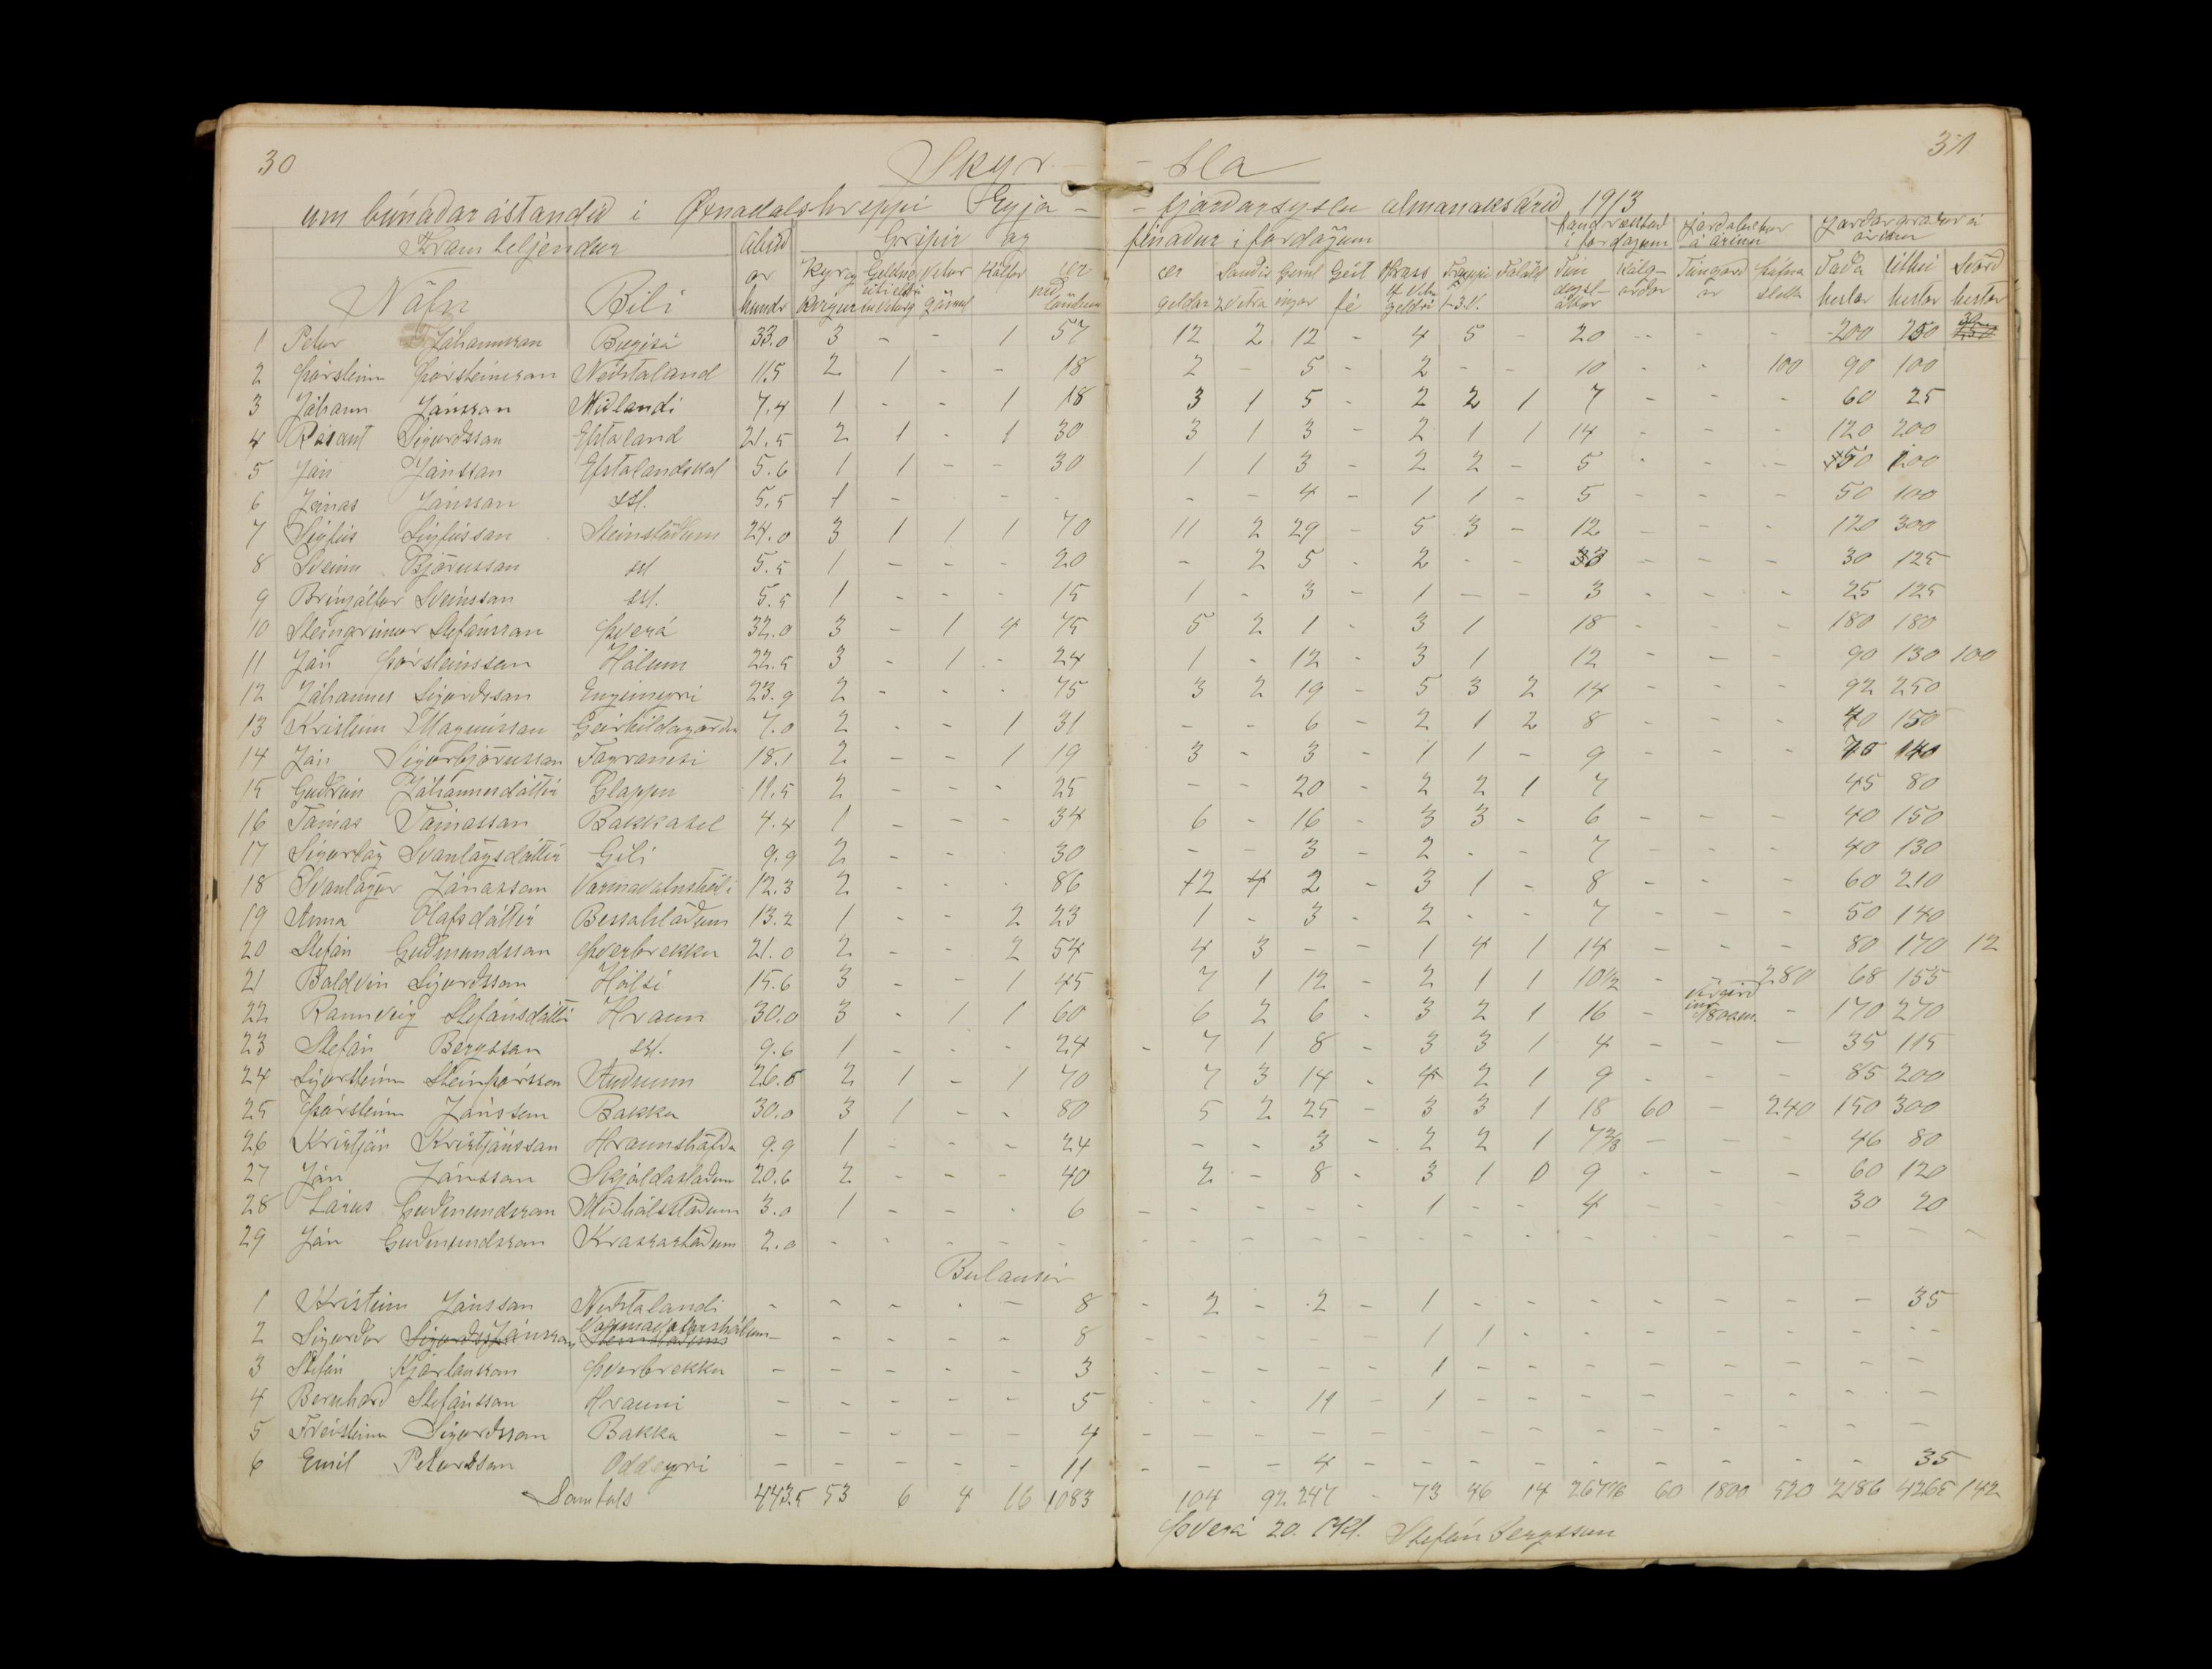 30
31
Skyr - - sla
um búnaðarástandið i Öxnadalshreppi Eyja - - fjarðarsyslu almanaksárið 1913
Framteljendur Ábúð Gripir og fénaður i fardögum Land ræktað i fardögum Jarðabætur á árinu Jarðargróður á árinu
Nöfn Býli ær geldar Geit fé Fol Tún Kálg- arðar Taða hestar Úthei hestar Svörð hestar
1 Petur Jóhannsson Bægisá 33.0 3 - - 1 57 12 2 12 - 4 5 - 20 - - - 200 250 30
2 Þorsteinn Þorsteinsson Neðstaland 11.5 2 1 - - 18 2 - 5 - 2 - - 10 - - 100 90 100
3 Jóhann Jónsson Miðlandi 7.4 1 - - 1 18 3 1 5 - 2 2 1 7 - - - 60 25
4 Rósant Sigurðsson Efstaland 21.5 2 1 - 1 30 3 1 3 - 2 1 1 14 - - - 120 200
5 Jón Jónsson Efstalandskot 5.6 1 1 - - 30 1 1 3 - 2 2 - 5 - - - 50 100
6 Jónas Jónsson sst. 5.5 1 - - - - - - 4 - 1 1 - 5 - - - 50 100
7 Sigfús Sigfússon Steinstöðum 24.0 3 1 1 1 70 11 2 29 - 5 3 - 12 - - - 120 300
8 Sveinn Björnsson sst 5.5 1 - - - 20 - 2 5 - 2 - - 3 - - - 30 125
9 Brinjólfur Sveinsson sst. 5.5 1 - - - 15 1 - 3 - 1 - - 3 - - - 25 125
10 Steingrimur Stefánsson Þverá 32.0 3 - 1 4 75 5 2 1 - 3 1 18 - - - 180 180
11 Jón Þorsteinsson Hólum 22.5 3 - 1 - 24 1 - 12 - 3 1 12 - - - 90 130 100
12 Jóhannes Sigurðsson Engimyri 23.9 2 - - - 75 3 2 19 - 5 3 2 14 - - - 92 250
13 Kristinn Magnússon Geirhildargörðu 7.0 2 - - 1 31 - - 6 - 2 1 2 8 - - - 40 150
14 Jón Sigurbjörnsson Fagranesi 18.1 2 - - 1 19 3 - 3 - 1 1 - 9 - - - 70 140
15 Guðrún Jóhannesdóttir Gloppu 11.5 2 - - - 25 - - 20 - 2 2 1 7 45 80
16 Tómas Tómasson Bakkasel 4.4 1 - - - 34 6 - 16 - 3 3 - 6 - - - 40 150
17 Sigurlög Svanlögsdóttir Gili 9.9 2 - - - 30 - - 3 - 2 - - 7 - - - 40 130
18 Svanlögur Jónasson Varmavatnshóli 12.3 2 - - - 86 12 4 2 - 3 1 - 8 - - - 60 210
19 Anna Ólafsdóttir Bessahlöðum 13.2 1 - - 2 23 1 - 3 - 2 - - 7 - - - 50 140
20 Stefán Guðmundsson Þverbrekku 21.0 2 - - 2 54 4 3 - - 1 4 1 14 - - - 80 170 12
21 Baldvin Sigurðsson Hólsi 15.6 3 - - 1 45 7 1 12 - 2 1 1 10½ - 280 68 155
22 Rannveig Stefánsdóttir Hraun 30.0 3 - 1 1 60 6 2 6 - 3 2 1 16 - 1800 - 170 270
23 Stefán Bergsson sst. 9.6 1 - - - 24 - 7 1 8 - 3 3 1 4 - - - 35 115
24 Sigursteinn Steinþórsson Auðnum 26.5 2 1 - 1 70 7 3 14 - 4 2 1 9 - - - 85 200
25 Þorsteinn Jónsson Bakka 30.0 3 1 - - 80 5 2 25 - 3 3 1 18 60 - 240 150 300
26 Kristján Kristjánsson Hraunshöfða 9.9 1 - - - 24 - - 3 - 2 2 1 7⅔ - - - 46 80
27 Jón Jónsson Skjaldastöðum 20.6 2 - - - 40 2 - 8 - 3 1 0 9 - - - 60 120
28 Lárus Guðmundsson Miðhálsstöðum 3.0 1 - - - 6 - - - - - 1 - - 4 - - 30 20
29 Jón Guðmundsson Krossastöðum 2.0 - - - - - - - - - - - - - - - - - - - -
Bulausir
1 Kristinn Jónsson Neðstalandi - - - - - 8 - 2 - 2 - 1 - - - - - - - 35
2 Sigurður Sigurðss Jónsson Steinstöðum Varmavatnshólum - - - - - 8 - - - - - 1 1 - - - - - - -
3 Stefán Kjartansson Þverbrekku - - - - - 3 - - - - - 1 - - - - - - - -
4 Bernharð Stefánsson Hrauni - - - - - 5 - - - 11 - 1 - - - - - - - -
5 Freisteinn Sigurðsson Bakka - - - - - 4 - - - - - - - - - - - - - -
6 Emil Petursson Oddeyri - - - - - 11 - - - 4 - - - - - - - - - 35
Samtals 443.5 53 6 4 16 1083 104 92 247 - 73 46 14 267 7/6 60 1800 520 2186 4265 142
Þverá 20. Okt. Stefán Bergsson